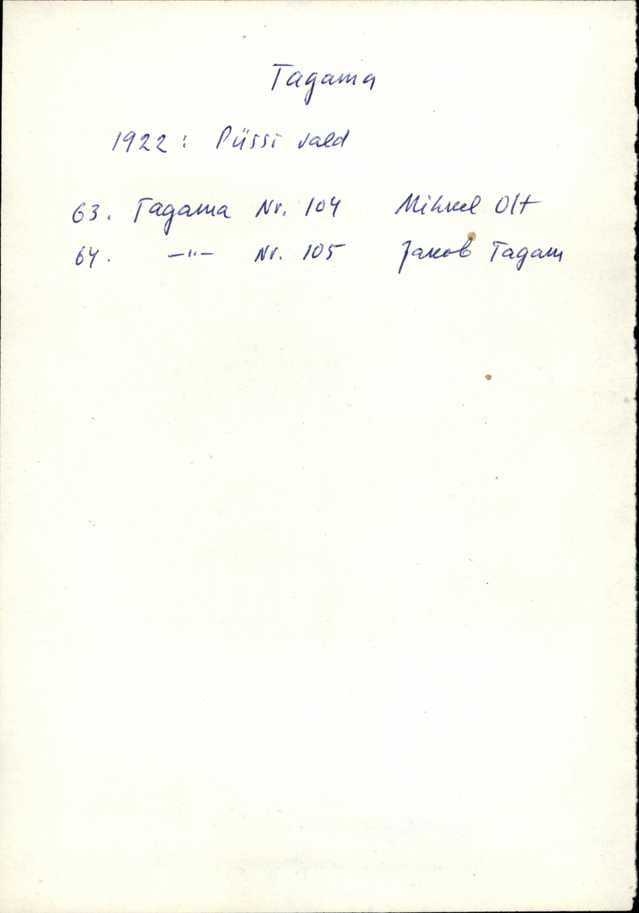 Tagama
1922: Püssi vald
63. Tagama Nr. 104 Mihkel Olt
64. —"— Nr. 105 Jakob Tagam